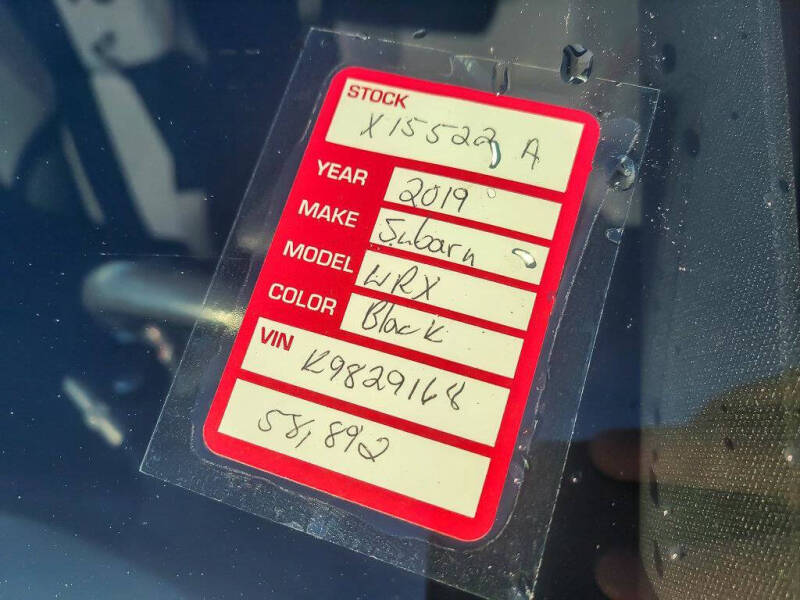 STOCK
X15522 A
YEAR 2019
MAKE Subaru
MODEL WRX
COLOR Black
VIN K9829168
58,892